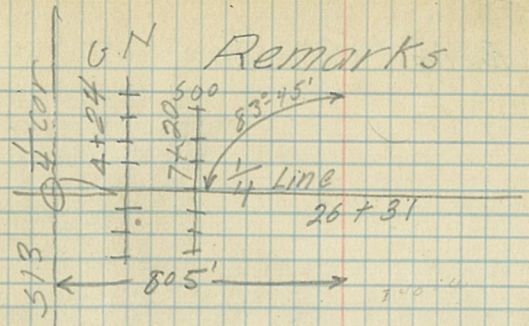 Remarks
G N
1/4 cor
4+24
7+20
500
83°-45'
1/4 Line
26 + 31
S13
805'